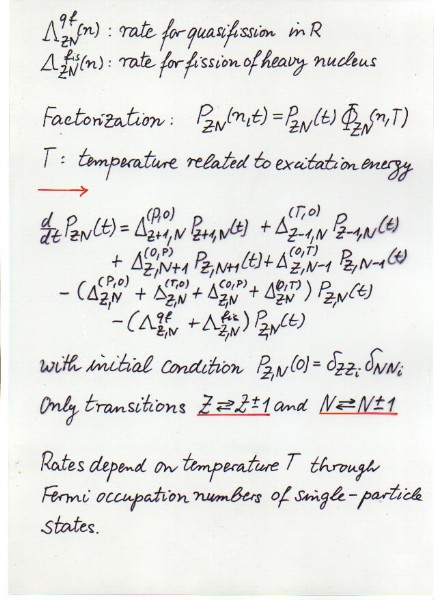 Λ^{qf}_{ZN}(n) : rate for quasifission in R
Λ^{fis}_{ZN}(n) : rate for fission of heavy nucleus
Factorization : P_{ZN}(n,t) = P_{ZN}(t) Φ_{ZN}(n,T)
T : temperature related to excitation energy
→
d/dt P_{ZN}(t) = Δ^{(P,0)}_{Z+1,N} P_{Z+1,N}(t) + Δ^{(T,0)}_{Z-1,N} P_{Z-1,N}(t)
+ Δ^{(0,P)}_{Z,N+1} P_{Z,N+1}(t) + Δ^{(0,T)}_{Z,N-1} P_{Z,N-1}(t)
- (Δ^{(P,0)}_{Z,N} + Δ^{(T,0)}_{Z,N} + Δ^{(0,P)}_{Z,N} + Δ^{(0,T)}_{ZN}) P_{Z,N}(t)
- (Λ^{qf}_{Z,N} + Λ^{fis}_{Z,N}) P_{Z,N}(t)
with initial condition P_{Z,N}(0) = δ_{ZZ_i} δ_{NN_i}
Only transitions Z ⇄ Z±1 and N ⇄ N±1
Rates depend on temperature T through
Fermi occupation numbers of single-particle
states.